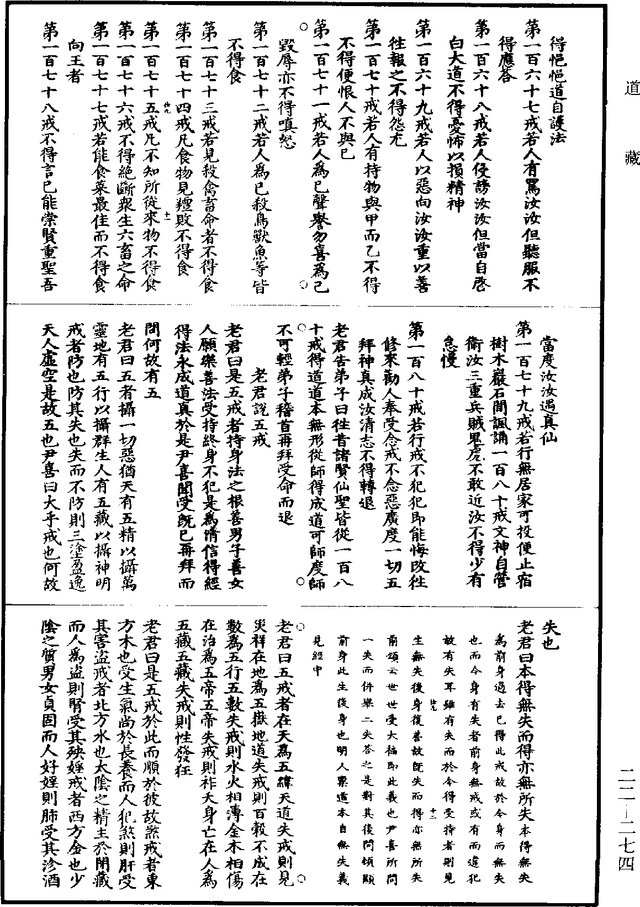 道藏
得悒悒道自護法
第一百六十七戒若人有罵汝汝但聽服不
得應答
第一百六十八戒若人侵謗汝汝但當自啓
白大道不得憂怖以損精神
第一百六十九戒若人以惡向汝汝重以善
往報之不得怨尤
第一百七十戒若人有持物與甲而乙不得
不得便恨人不與已
第一百七十一戒若人為已聲譽勿喜為已
毀辱亦不得嗔怒
第一百七十二戒若人為已殺鳥獸魚等皆
不得食
第一百七十三戒若見殺禽畜命者不得食
第一百七十四戒凡食物見羶敗不得食
第一百七十五戒凡不知所從來物不得食
第一百七十六戒不得絕斷衆生六畜之命
第一百七十七戒若能食菜最佳而不得食
向王者
第一百七十八戒不得言已能崇賢重聖吾
當度汝汝遇真仙
第一百七十九戒若行無居家可投便止宿
樹木巖石間諷誦一百八十戒文神自營
衛汝三重兵賊鬼虎不敢近汝不得少有
怠慢
第一百八十戒若行戒不犯犯即能悔改往
修來勸人奉受念戒不念惡廣度一切五
拜神真成汝清志不得轉退
老君告弟子曰往昔諸賢仙聖皆從一百八
十戒得道道本無形從師得成道可師度師
不可輕弟子稽首再拜受命而退
老君說五戒
老君曰是五戒者持身法之根善男子善女
人願樂善法受持終身不犯是為清信得經
得法永成道真於是尹喜聞受既已再拜而
問何故有五
老君曰五者攝一切惡猶天有五精以攝萬
靈地有五行以攝群生人有五藏以攝神明
戒者防也防其失也失而不防則三塗盈逸
天人虛空是故五也尹喜曰大乎戒也何故
失也
老君曰本得無失而得亦無所失本得無失
為前身過去已得此戒故於今身而無失
也而今身有失者前身無戒或有而違犯
故有失耳雖有失而於今得受持者則見
生無失後身復善故既失而得亦無所失
前頌云世世受大福即此義也尹喜所問
一失而併樂二失答之是對其後問傾顯
前身此生後身也明人稟道本自無失義
見經中
老君曰五戒者在天為五緯天道失戒則見
災祥在地為五嶽地道失戒則百穀不成在
數為五行五數失戒則水火相薄金木相傷
在治為五帝五帝失戒則祚夭身亡在人為
五藏五藏失戒則性發狂
老君曰是五戒於此而順於彼故煞戒者東
方木也受生氣尚於長養而人犯煞則肝受
其害盜戒者北方水也太陰之精主於閉藏
而人為盜則腎受其殃婬戒者西方金也少
陰之質男女貞固而人好婬則肺受其沴酒
二二—二七四